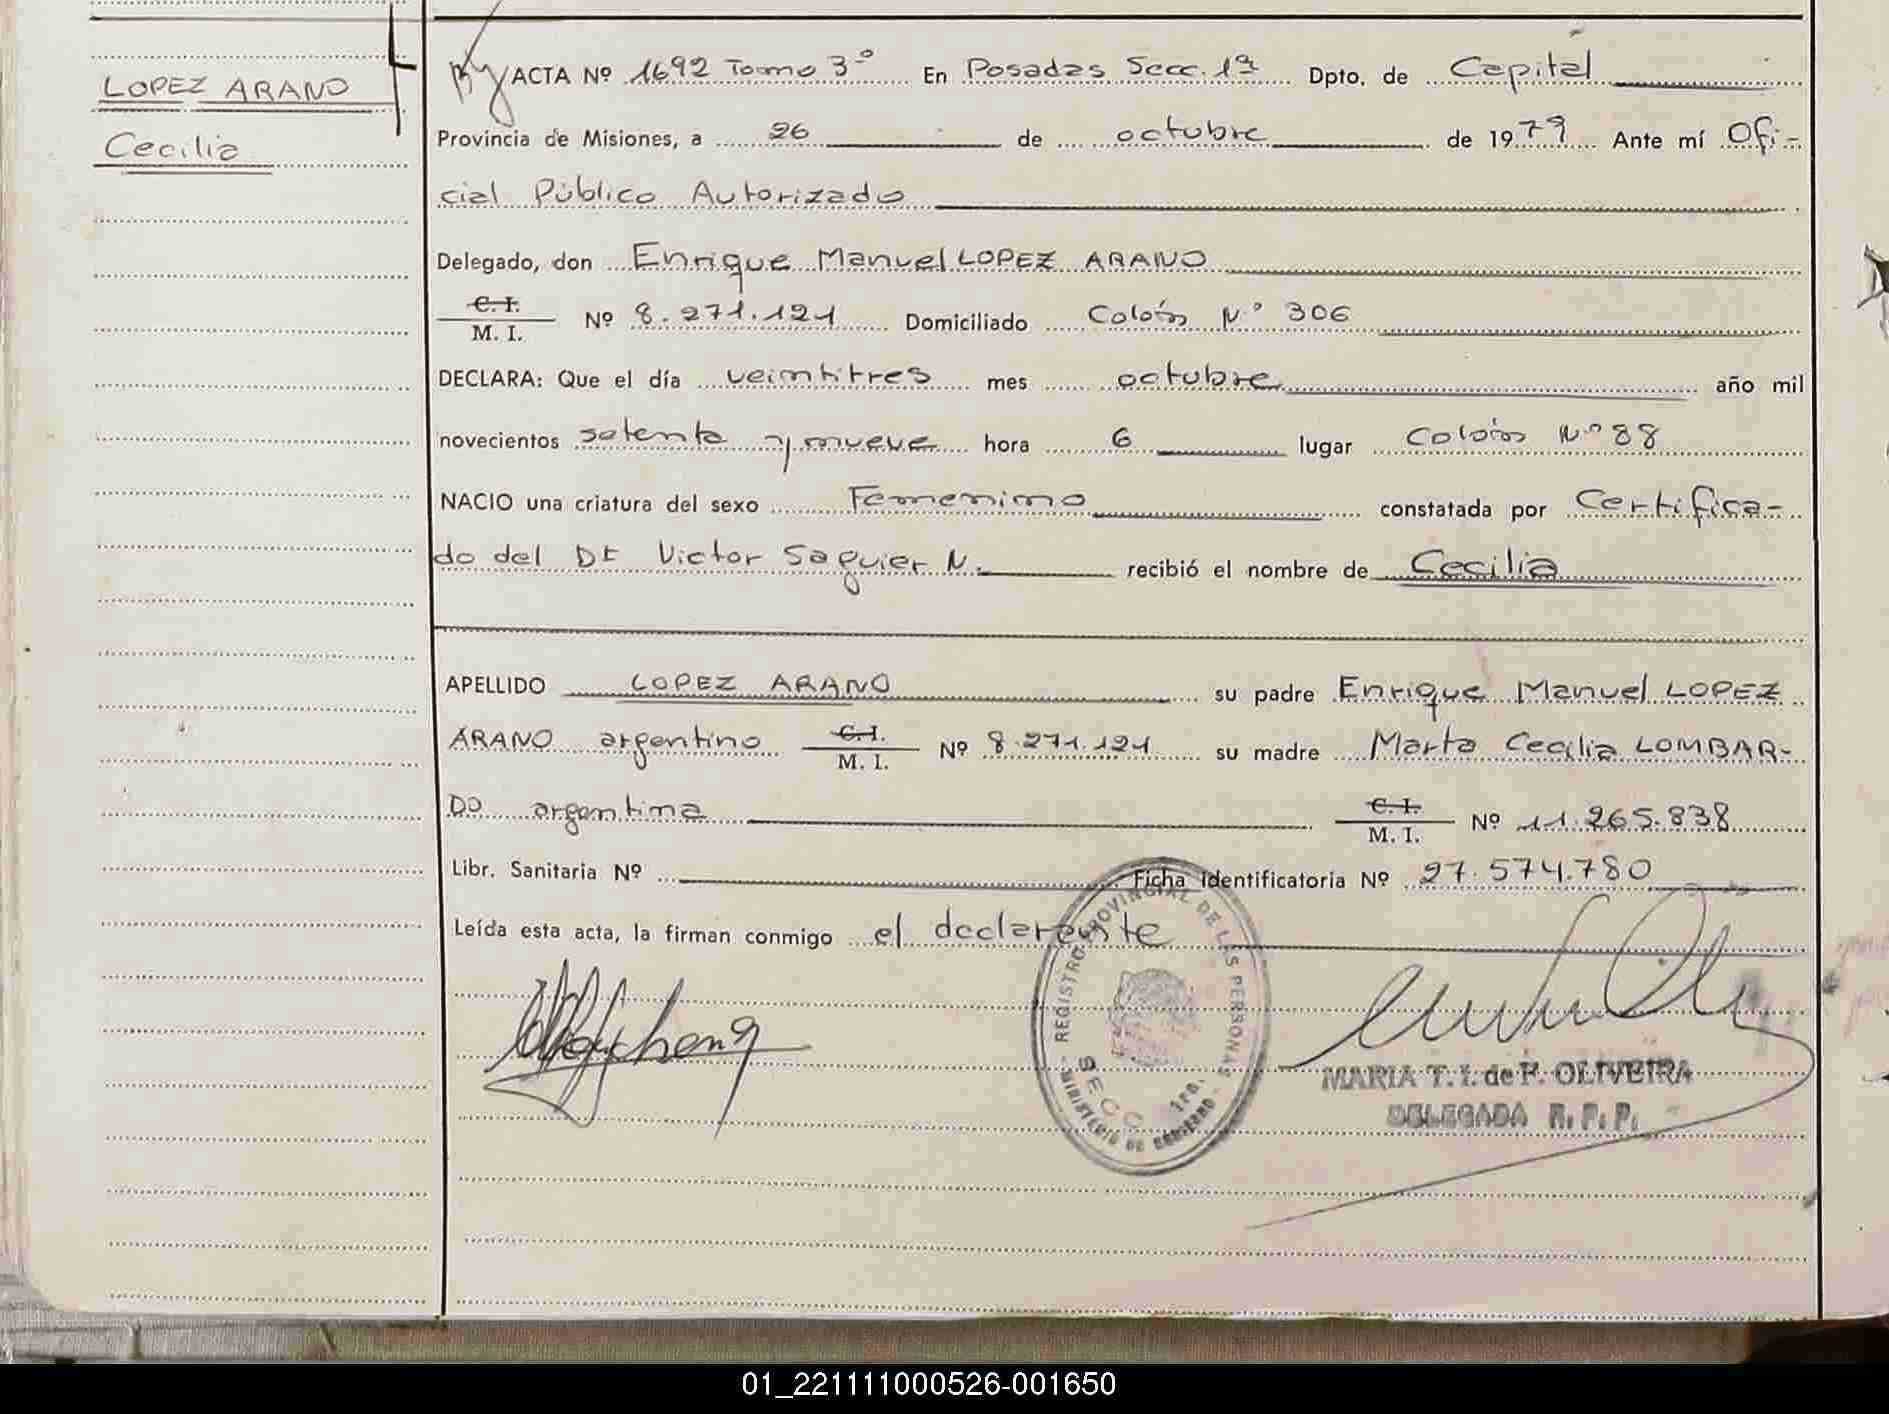 LOPEZ ARANO
Cecilia
ACTA Nº 1692 Tomo 3º En Posadas Secc. 1ª Dpto. de Capital
Provincia de Misiones, a 26 de octubre de 1979 Ante mí Ofi-
cial Público Autorizado
Delegado, don Enrique Manuel LOPEZ ARANO
C. I.
M. I. Nº 8.271.121 Domiciliado Colón Nº 306
DECLARA: Que el día veintitres mes octubre año mil
novecientos setenta y nueve hora 6 lugar Colón Nº 88
NACIO una criatura del sexo Femenino constatada por Certifica-
do del Dr Victor Saguier N. recibió el nombre de Cecilia
APELLIDO LOPEZ ARANO su padre Enrique Manuel LOPEZ
ARANO argentino C. I. M. I. Nº 8.271.121 su madre Marta Cecilia LOMBAR-
DO argentina C. I. M. I. Nº 11.265.838
Libr. Sanitaria Nº Ficha Identificatoria Nº 27.574.780
Leída esta acta, la firman conmigo el declarante
REGISTRO PROVINCIAL DE LAS PERSONAS
SECC. 1ra.
MINISTERIO DE GOBIERNO
MARIA T. I. de P. OLIVEIRA
DELEGADA R. P. P.
01_221111000526-001650